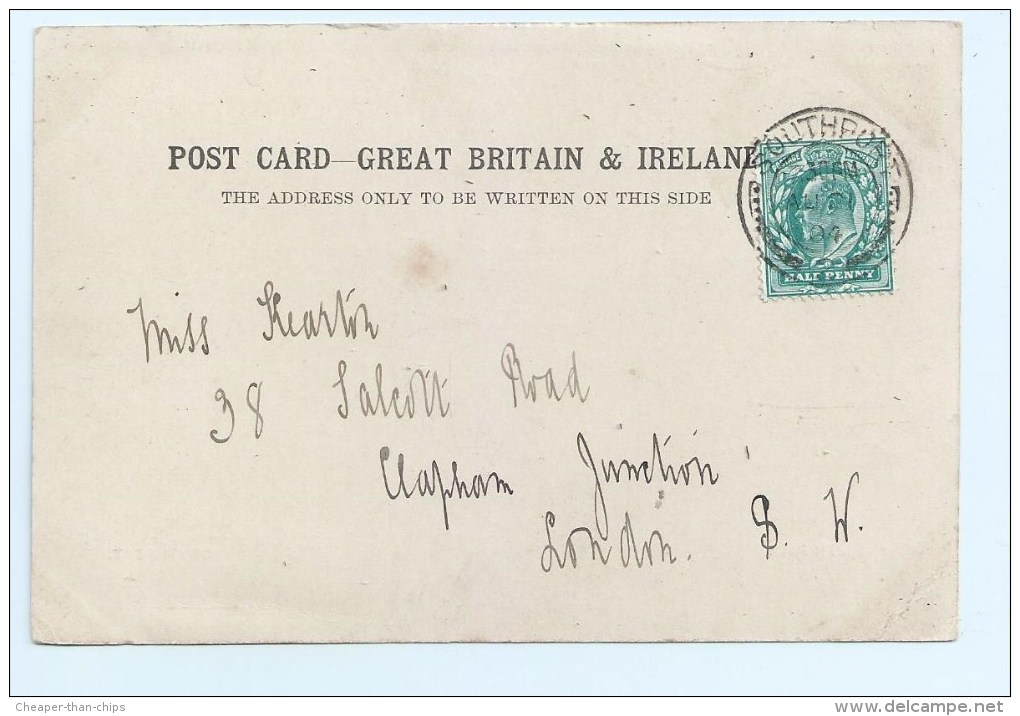 POST CARD—GREAT BRITAIN & IRELAND
THE ADDRESS ONLY TO BE WRITTEN ON THIS SIDE
SOUTHPORT
AU 21
04
HALF PENNY
Miss Kearton
38 Salcott Road
Clapham Junction
London. S. W.
Cheaper-than-chips
www.delcampe.net